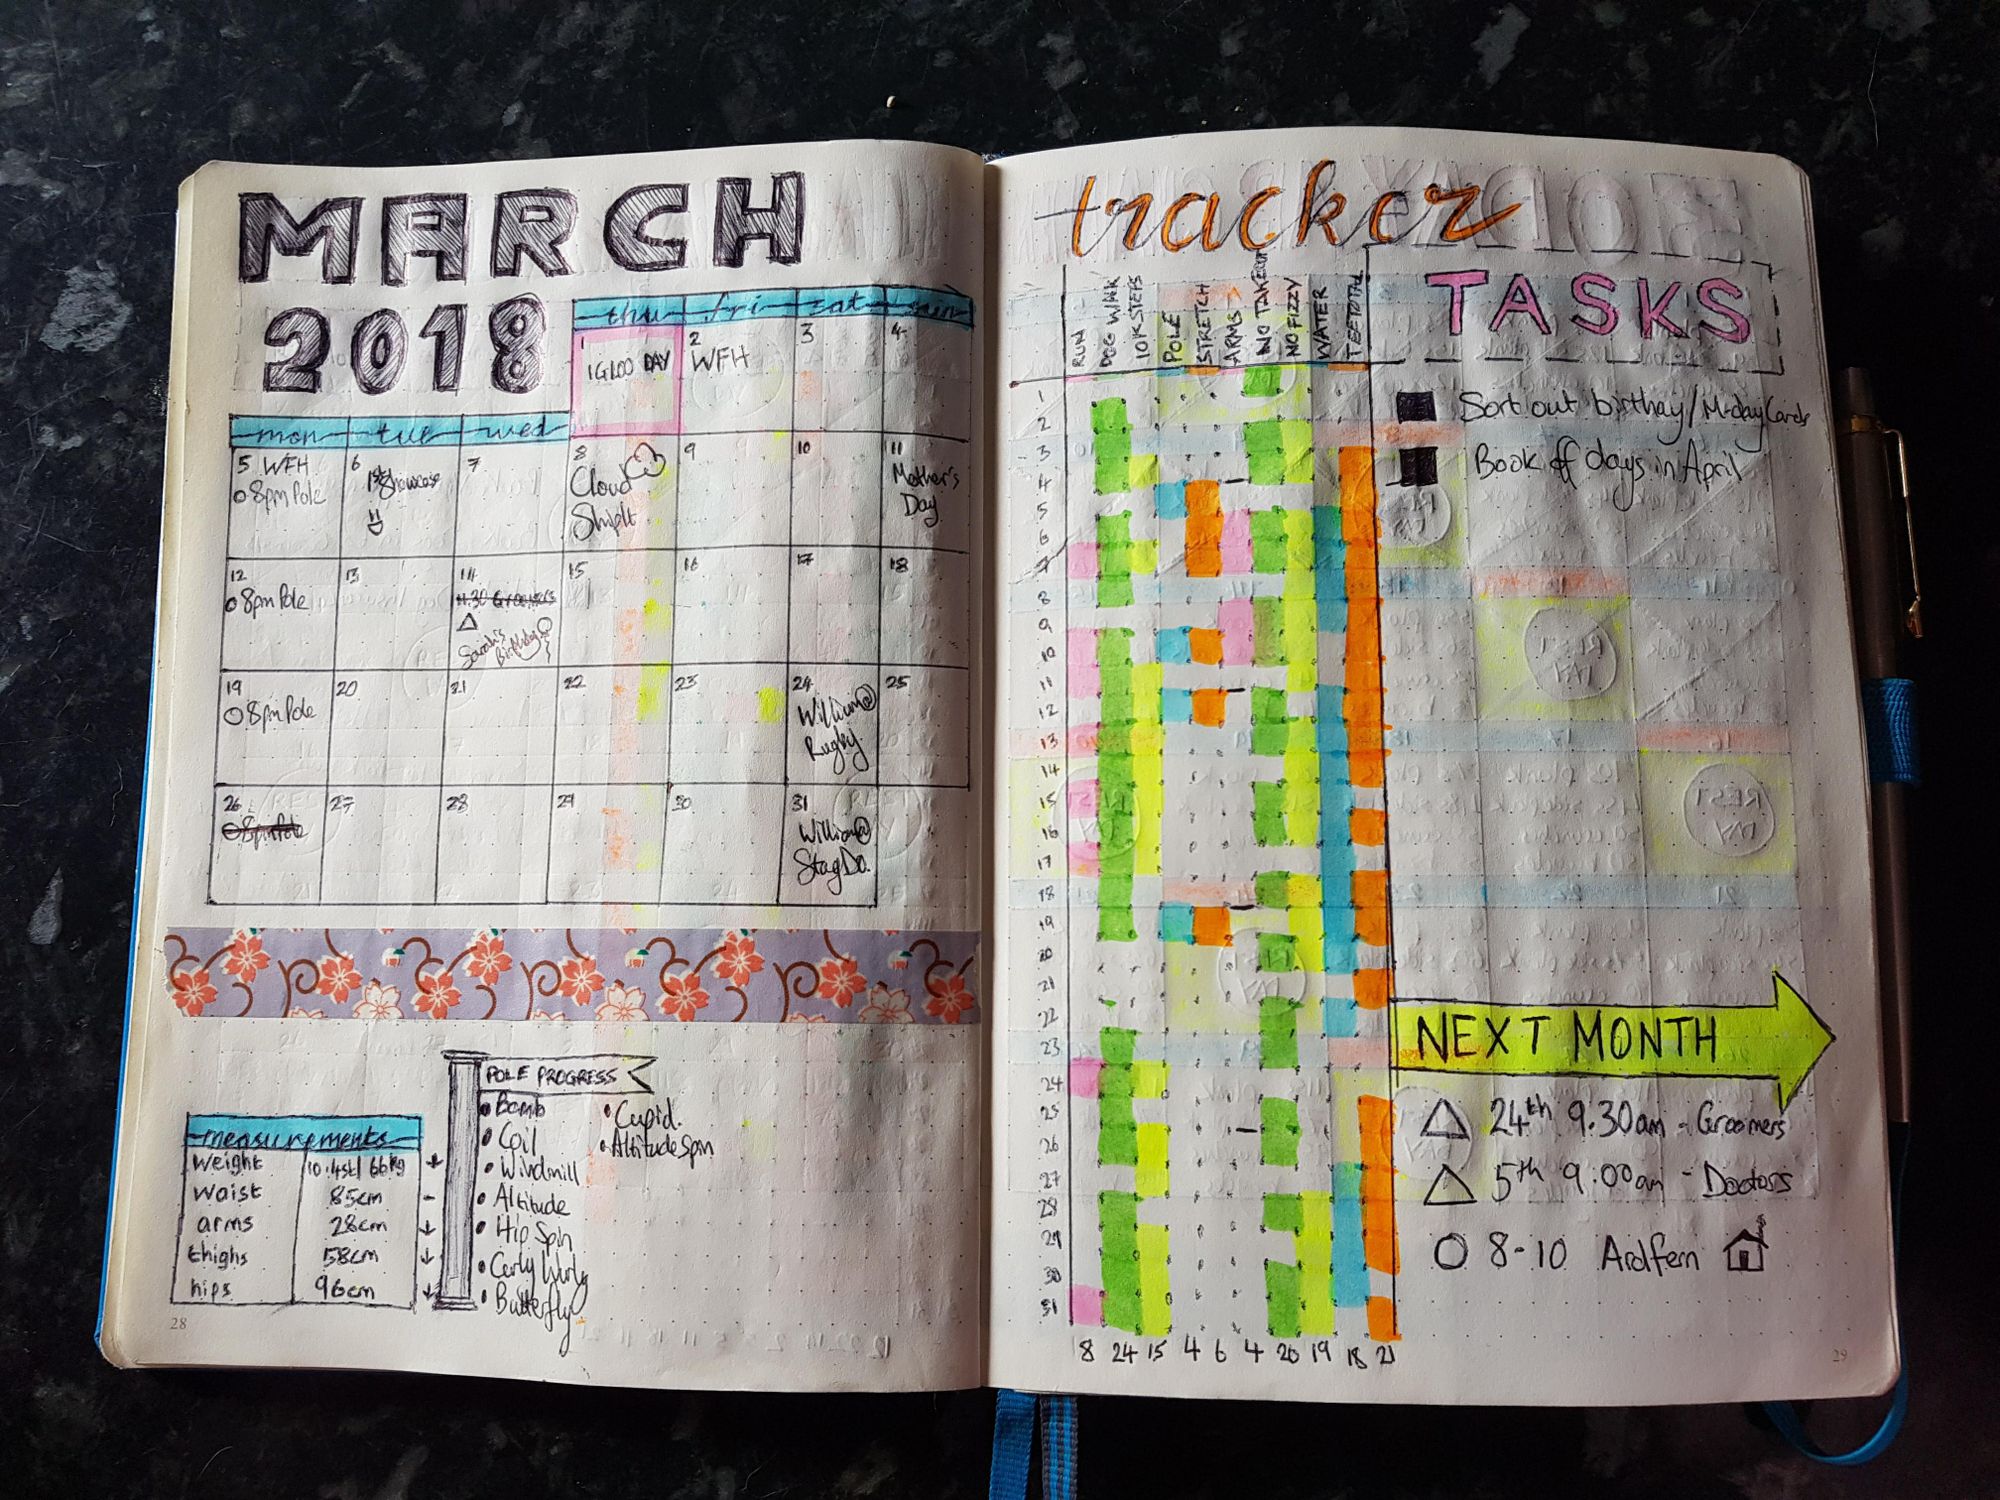 MARCH
2018
thu fri sat sun
1 IGLOO DAY
2 WFH
3
4
mon tue wed
5 WFH
o 8pm Pole
6 1st Showcase
7
8
Cloud
ShipIt
9
10
11
Mother's
Day
12
o 8pm Pole
13
14
11.30 Groomers
△
Sarah's
Birthday
15
16
17
18
19
O 8pm Pole
20
21
22
23
24
William@
Rugby
25
26
O 8pm Pole
27
28
29
30
31
William@
Stag Do.
POLE PROGRESS
• Bomb
• Coil
• Windmill
• Altitude
• Hip Spin
• Curly Wurly
• Butterfly
• Cupid.
• Altitude Spin
measurements
weight 10.4st/66kg ↓
waist 85cm -
arms 28cm ↓
thighs 58cm ↓
hips 96cm ↓
28
tracker
RUN
DOG WALK
10K STEPS
POLE
STRETCH
ARMS
NO TAKEOUT
NO FIZZY
WATER
TEETOTAL
1
2
3
4
5
6
7
8
9
10
11
12
13
14
15
16
17
18
19
20
21
22
23
24
25
26
27
28
29
30
31
8 24 15 4 6 4 20 19 18 21
TASKS
Sort out birthay/M-day Cards
Book off days in April
NEXT MONTH
△ 24th 9.30am - Groomers
△ 5th 9.00am - Doctors
O 8-10 Ardfern
29